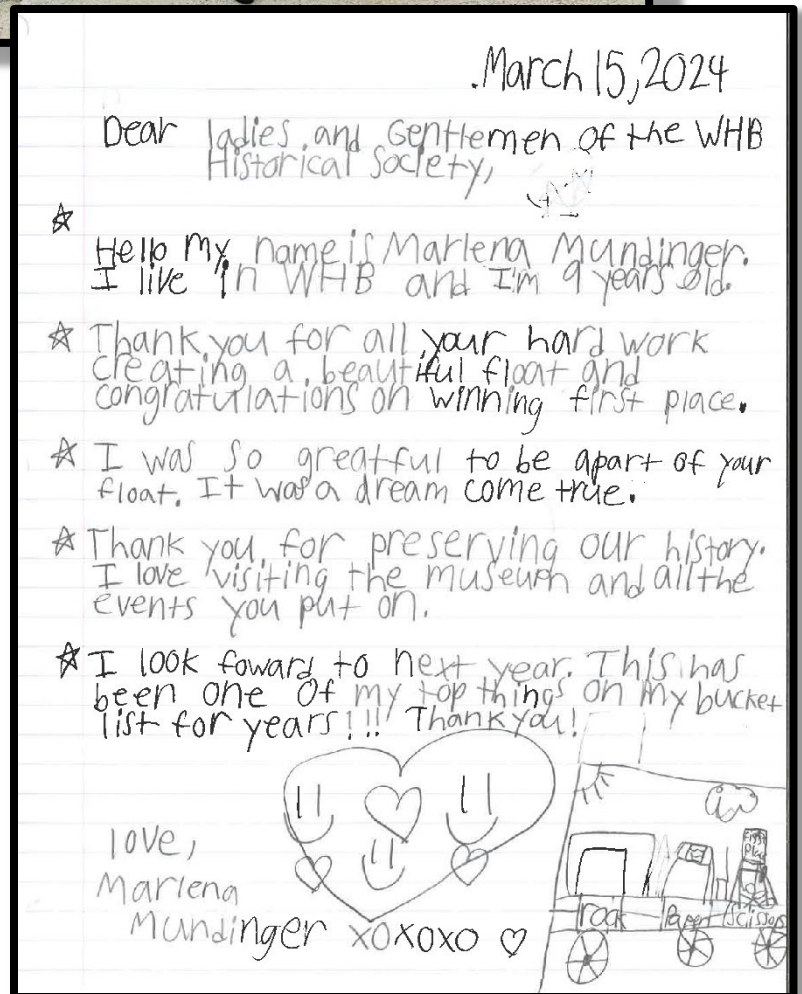 .March 15, 2024
Dear ladies and Gentlemen of the WHB
Historical Society,
Hello My name is Marlena Mundinger.
I live in WHB and I'm 9 years old.
Thank you for all your hard work
creating a beautiful float and
congratulations on winning first place.
I was so greatful to be apart of your
float. It was a dream come true.
Thank you for preserving our history.
I love visiting the museum and all the
events you put on.
I look foward to next year. This has
been one of my top things on my bucket
list for years!!!! Thank you!
love,
Marlena
Mundinger xoxoxo
First
Place
rock Paper Scissors